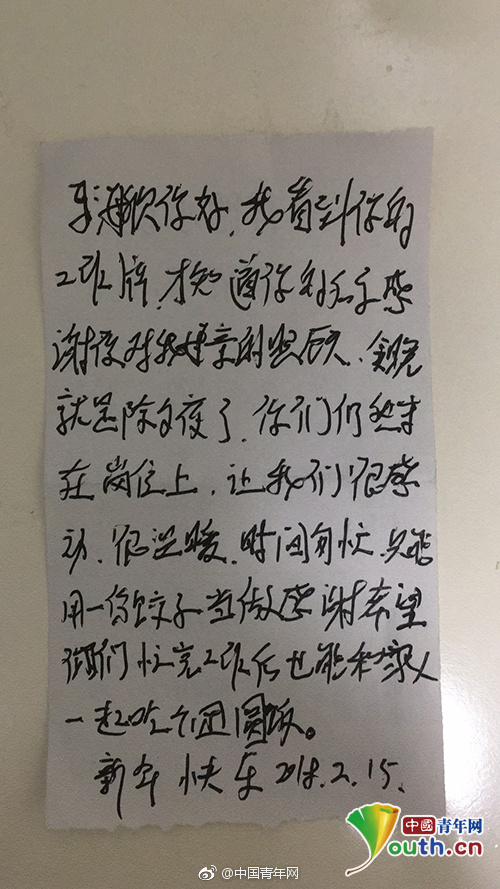 你好,我看到你的
工班牌,才知道你的名字感
谢你对我母亲的照顾、今晚
就是除夕夜了,你们仍然守
在岗位上,让我们很感
动、很温暖,时间匆忙,只能
用一份饺子当做感谢希望
你们忙完工班后也能和家人
一起吃个团圆饭。
新年快乐2018.2.15.
中國青年网
Youth.cn
@中国青年网